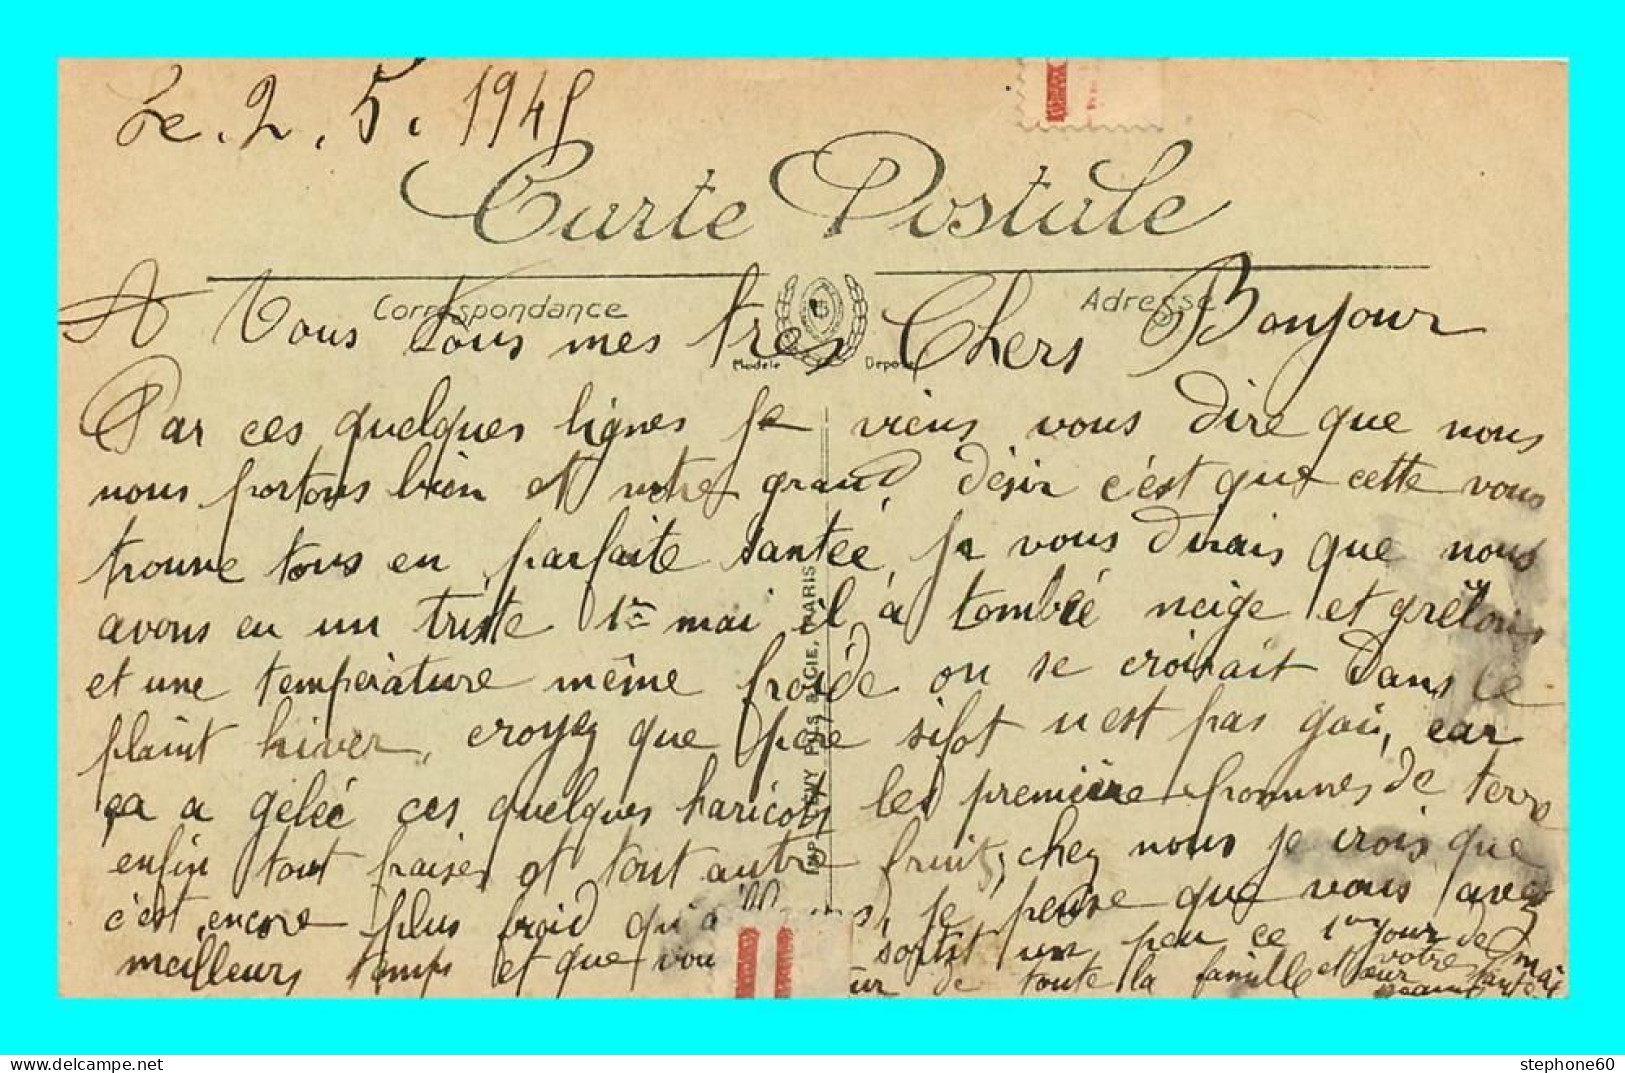 Le. 2. 5. 1945
Carte Postale
Correspondance
Adresse
Modèle Déposé
A Vous tous mes tres Chers Bonjour
Par ces quelques lignes je viens vous dire que nous
nous portons bien et notre grand désir c'est que cette vous
trouve tous en parfaite santée, je vous dirais que nous
avons eu un triste 1er mai il à tombée neige et grêlons
et une température même froide on se croirait dans le
plaint hiver, croyez que père sifot n'est pas gai, car
ça a gelée ces quelques haricots les première pommes de terre
enfin tout fraises et tout autre fruits, chez nous je crois que
c'est encore plus froid qu'à je pense que vous avez
meilleurs temps et que vou sortit un peu ce 1er jour de mai
de toute la famille et votre santé
IMP. LEVY FILS & CIE, PARIS
stephone60